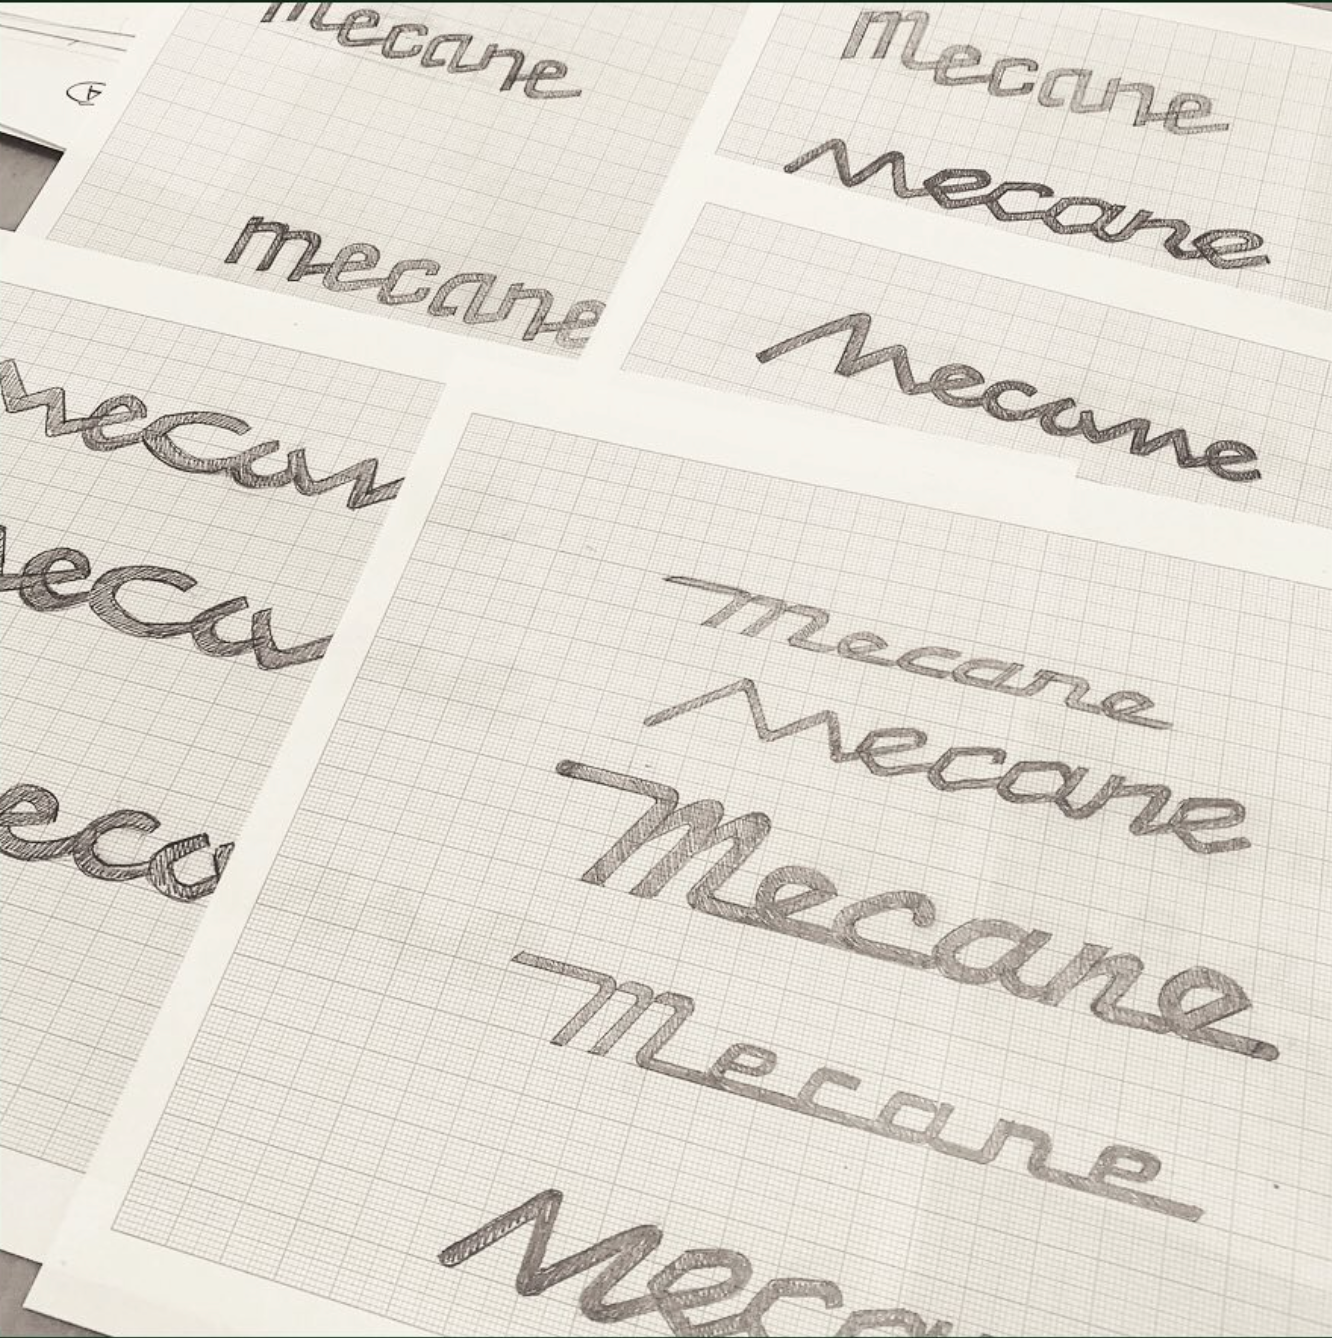 mecane
mecane
mecane
Mecane
Mecane
mecan
eca
eca
Mecane
Mecane
Mecane
Mecane
Meca